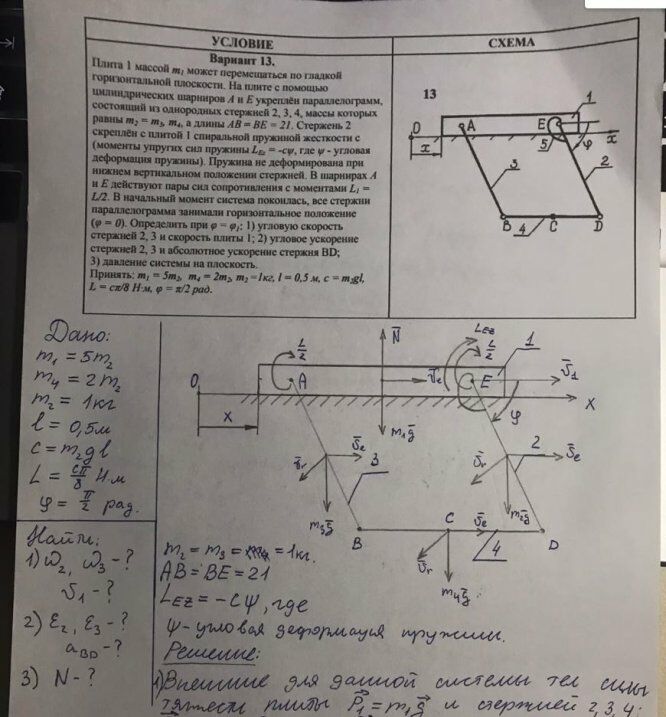 УСЛОВИЕ
СХЕМА
Вариант 13.
Плита 1 массой m₁ может перемещаться по гладкой
горизонтальной плоскости. На плите с помощью
цилиндрических шарниров A и E укреплён параллелограмм,
состоящий из однородных стержней 2, 3, 4, массы которых
равны m₂ = m₃, m₄, а длины AB = BE = 2l. Стержень 2
скреплён с плитой 1 спиральной пружиной жесткости c
(моменты упругих сил пружины L_Ez = -cψ, где ψ - угловая
деформация пружины). Пружина не деформирована при
нижнем вертикальном положении стержней. В шарнирах A
и E действуют пары сил сопротивления с моментами L₁ =
L/2. В начальный момент система покоилась, все стержни
параллелограмма занимали горизонтальное положение
(φ = 0). Определить при φ = φ₁: 1) угловую скорость
стержней 2, 3 и скорость плиты 1; 2) угловое ускорение
стержней 2, 3 и абсолютное ускорение стержня BD;
3) давление системы на плоскость.
Принять: m₁ = 5m₂, m₄ = 2m₂, m₂ =1кг, l = 0,5 м, c = m₂gl,
L = cπ/8 Н·м, φ = π/2 рад.
13
1
O A E x
5 φ
x
3 2
B C D
4
Дано:
m₁ = 5m₂
m₄ = 2m₂
m₂ = 1кг
l = 0,5м
c = m₂gl
L = cπ/8 Н·м
φ = π/2 рад.
Найти:
1) ω₂, ω₃ - ?
v₁ - ?
2) ε₂, ε₃ - ?
a_BD - ?
3) N - ?
L_EZ
N̄
L/2 L/2 1
O A v̄e E v̄₁
X
x m₁ḡ φ
v̄e 2
v̄r 3 v̄r v̄e
m₃ḡ m₂ḡ
C v̄e
B D
v̄r 4
m₄ḡ
m₂ = m₃ = 1кг.
AB = BE = 2l
L_EZ = -cψ, где
ψ - угловая деформация пружины.
Решение:
1) Внешние для данной системы тел силы
тяжести плиты P̄₁ = m₁ḡ и стержней 2, 3, 4: